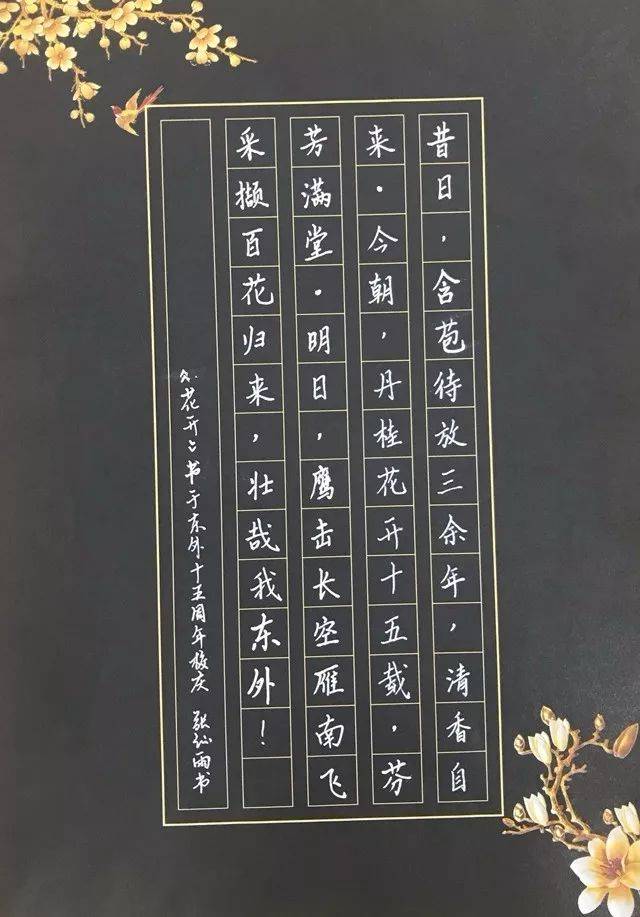 昔日，含苞待放三余年，清香自
来．今朝，丹桂花开十五载，芬
芳满堂．明日，鹰击长空雁南飞
采撷百花归来，壮哉我东外！
花开 书于东外十五周年校庆 张 雨书